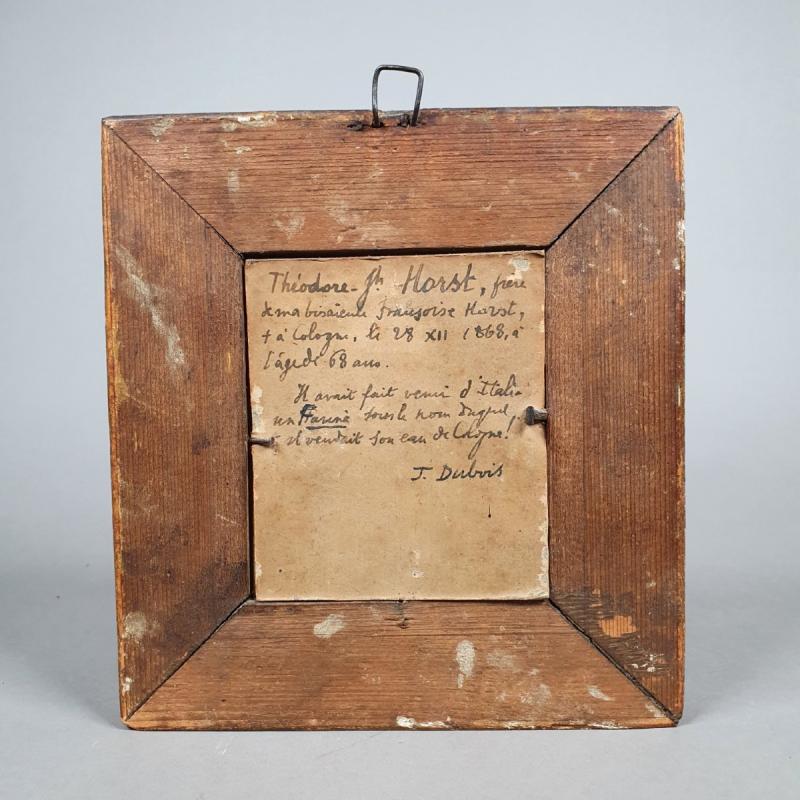 Théodore-Jh Horst, frère
de ma bisaieule Françoise Horst,
+ à Cologne, le 28 XII 1868, à
l'âge de 68 ans.
Il avait fait venir d'Italie
un Farina sous le nom duquel
il vendait son eau de Cologne!
J. Dubois